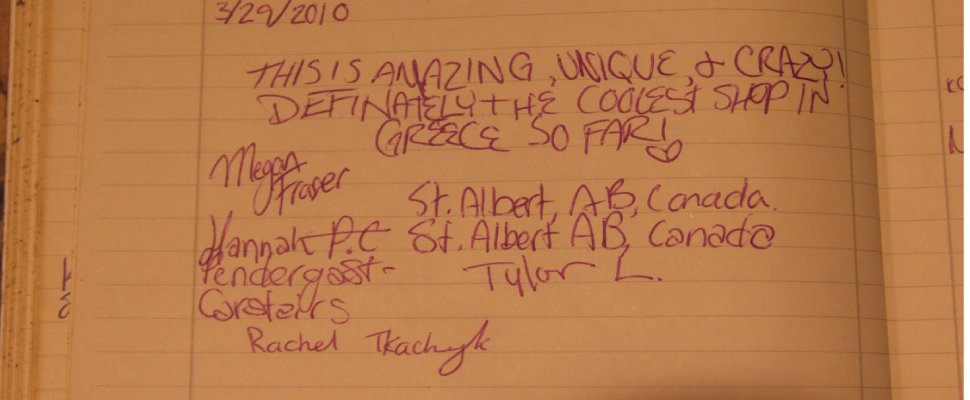 3/29/2010
THIS IS AMAZING, UNIQUE, & CRAZY!
DEFINATELY THE COOLEST SHOP IN
GREECE SO FAR!
Megan
Fraser
St. Albert, AB, Canada.
Hannah P.C St. Albert AB, Canada
Pendergast-
Carstairs
Tylor L.
Rachel Tkachyk